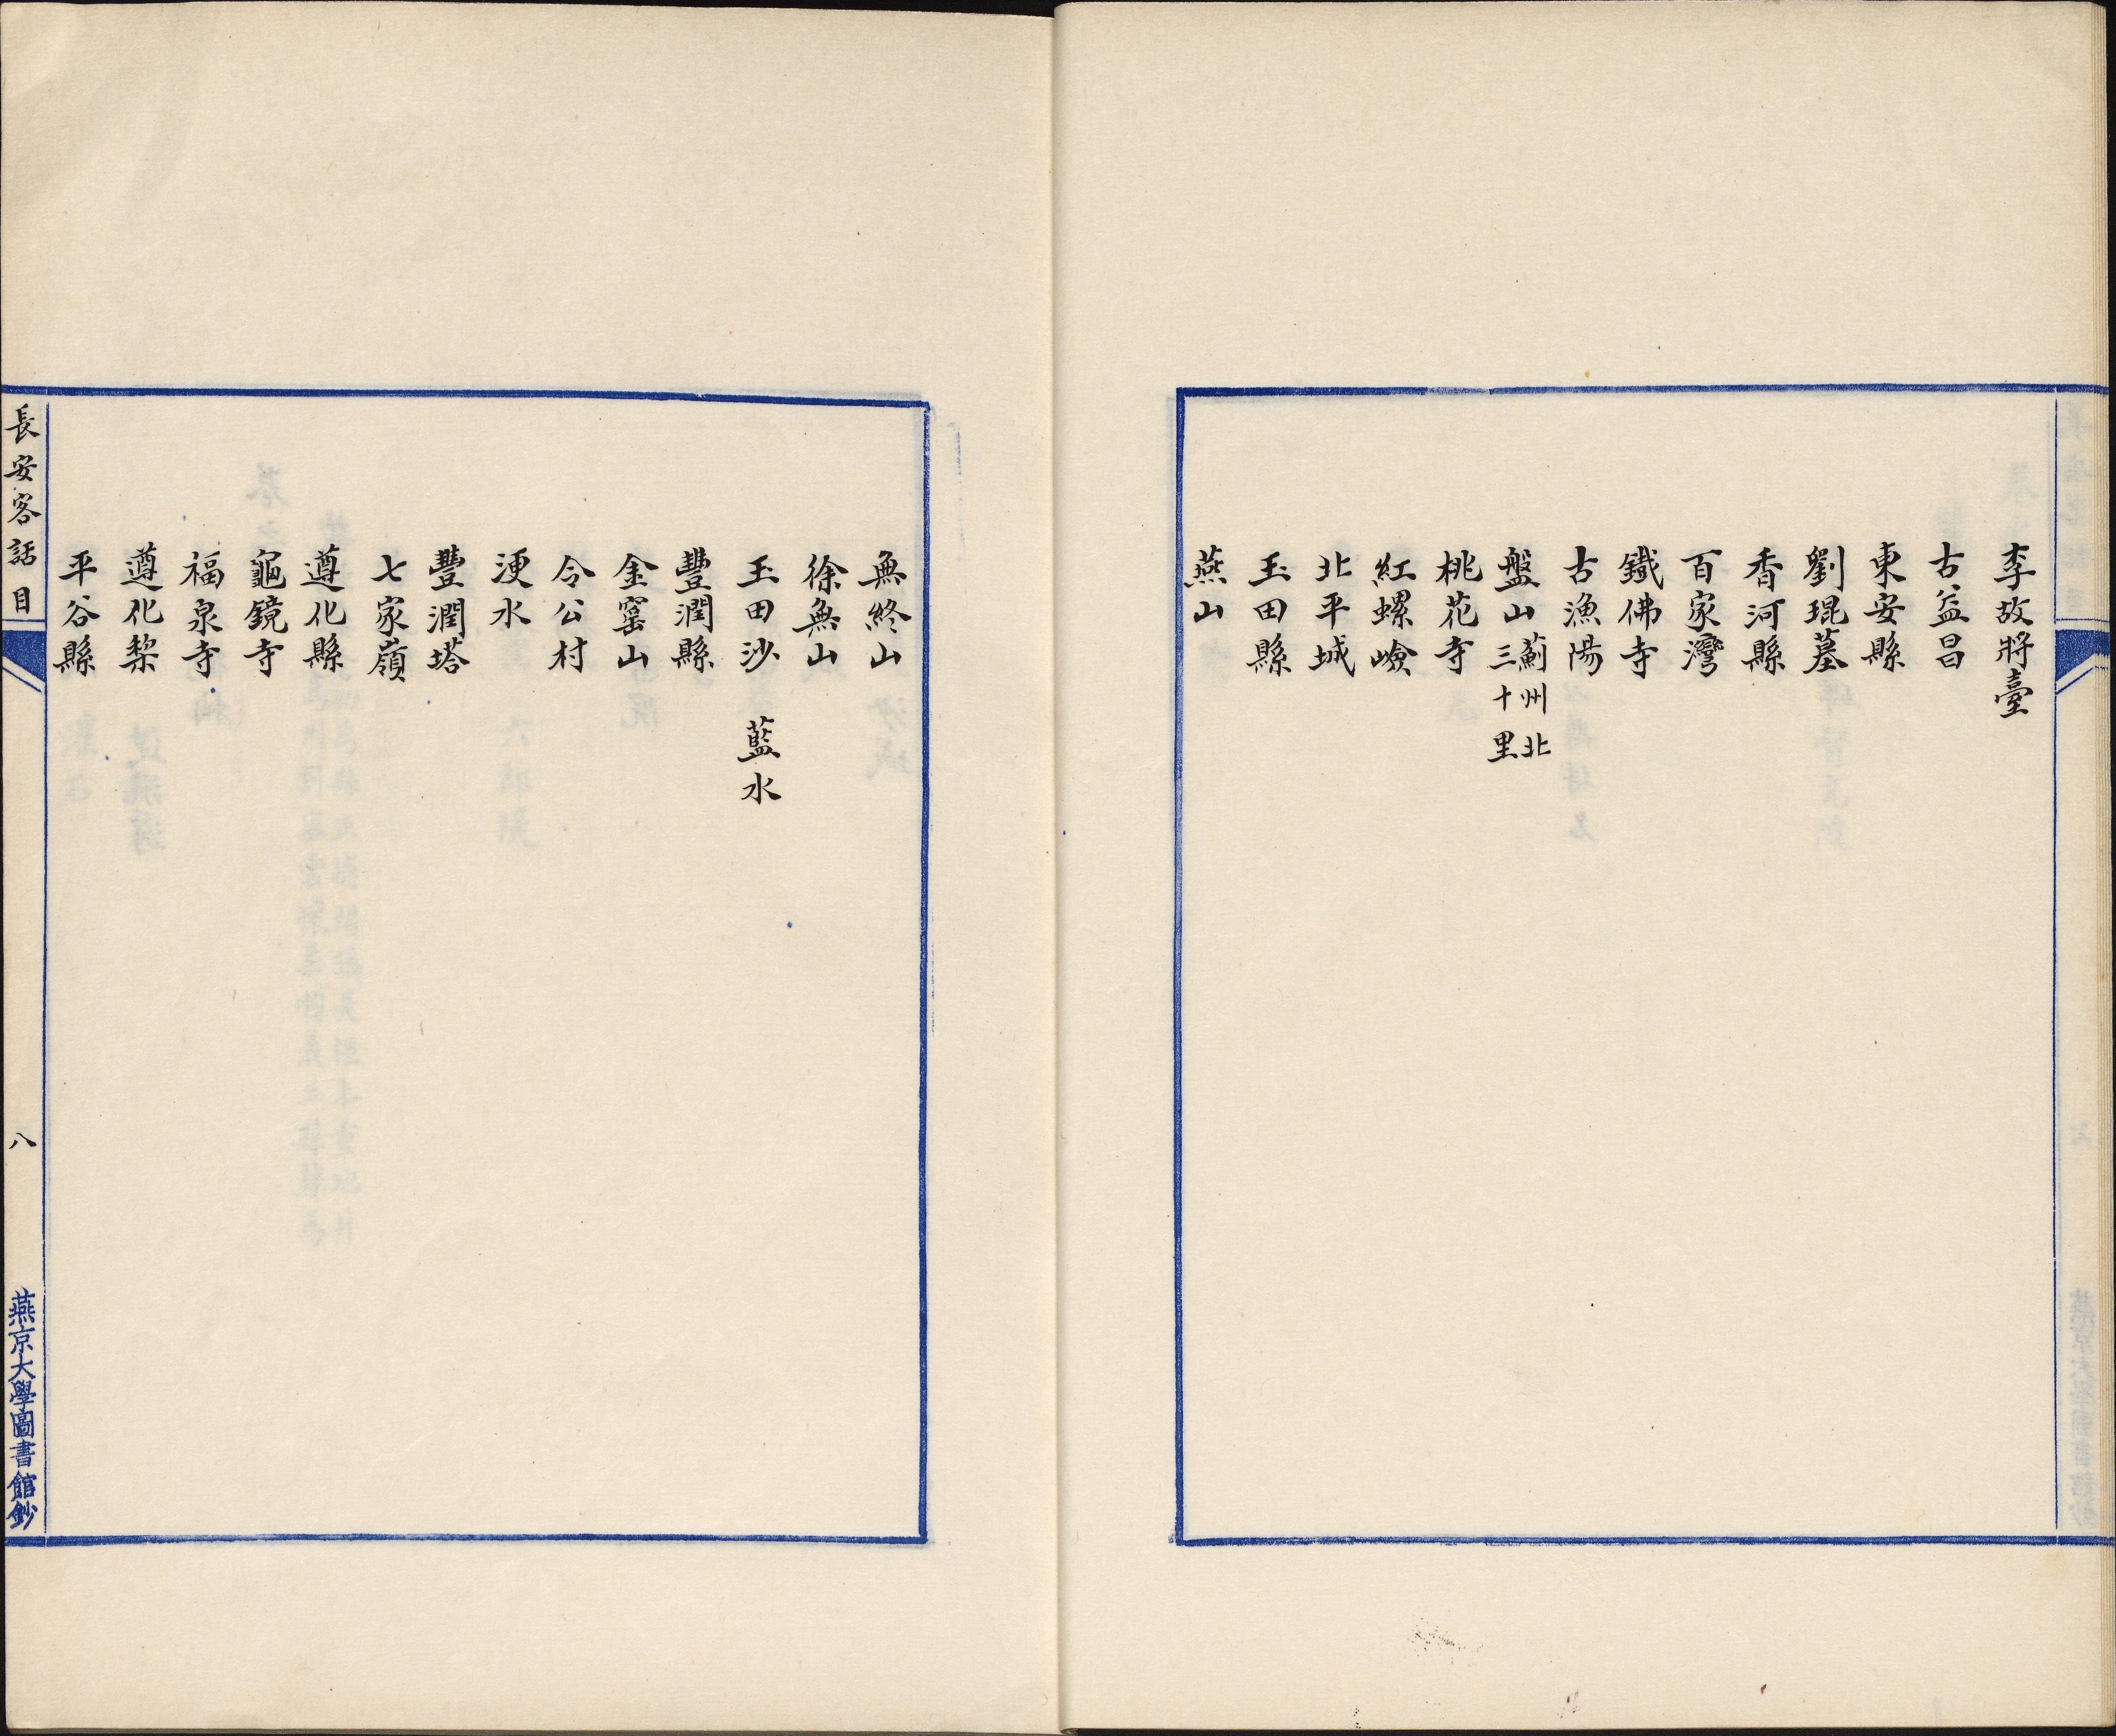 李故將臺
古益昌
東安縣
劉琨墓
香河縣
百家灣
鐵佛寺
古漁陽
盤山薊州北三十里
桃花寺
紅螺嶮
北平城
玉田縣
燕山
無終山
徐無山
玉田沙 藍水
豐潤縣
金窰山
令公村
浭水
豐潤塔
七家嶺
遵化縣
龜鏡寺
福泉寺
遵化棃
平谷縣
長安客話 目
八
燕京大學圖書館鈔